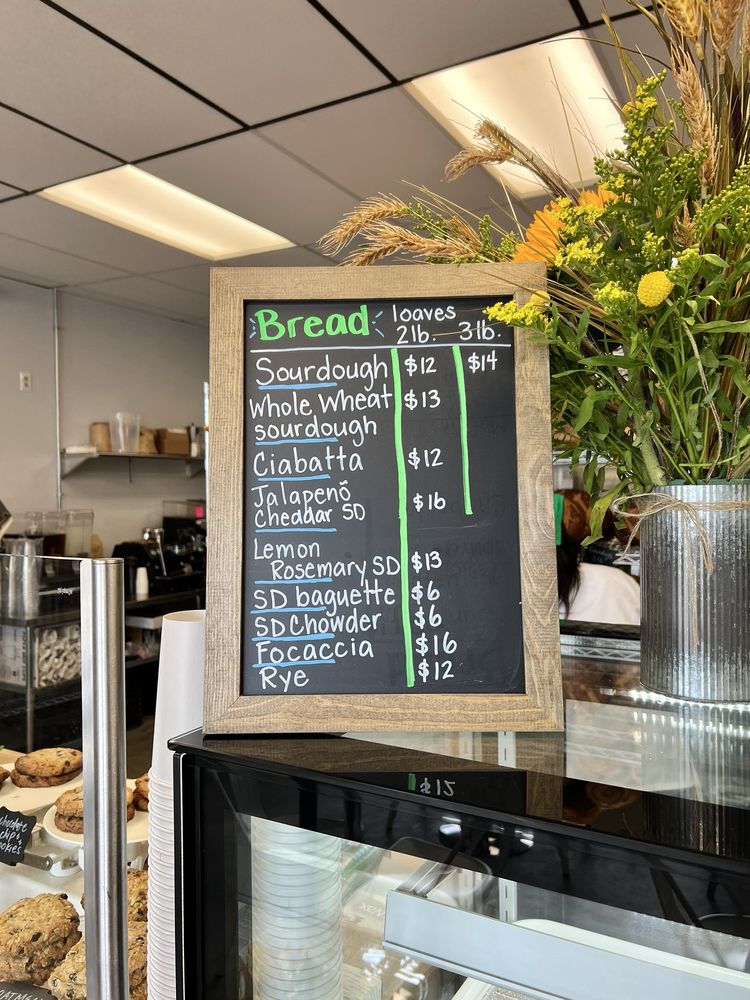 Bread loaves
2lb. 3lb.
Sourdough $12 $14
Whole Wheat $13
sourdough
Ciabatta $12
Jalapeño $16
Cheddar SD
Lemon
Rosemary SD $13
SD baguette $6
SD Chowder $6
Focaccia $16
Rye $12
$12
chocolate
chip
cookies
OATMEAL